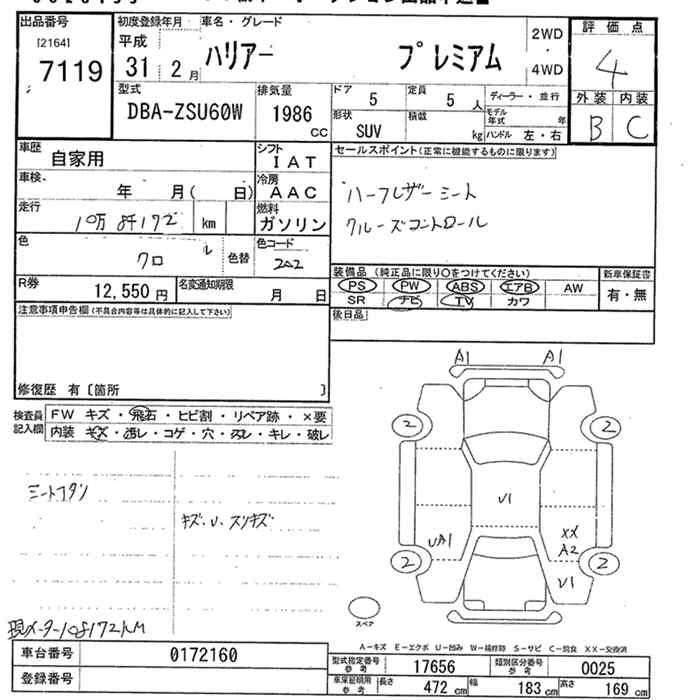 出品番号
[2164]
7119
初度登録年月
平成
31 2月
車名・グレード
ハリアー プレミアム
2WD
・
4WD
評価点
4
外装 内装
B C
型式
DBA-ZSU60W
排気量
1986
cc
ドア
5
定員
5 人
ディーラー・並行
形状
SUV
積載
kg
モデル年式 年
ハンドル 左・右
車歴
自家用
シフト
IAT
セールスポイント(正常に機能するものに限ります)
ハーフレザーシート
クルーズコントロール
車検
年 月( 日)
冷房
AAC
走行
10万8千172 km
燃料
ガソリン
色
クロ
色替
色コード
202
R券
12,550円
名変通知期限
月 日
装備品(純正品に限り○をつけてください)
PS PW ABS エアB AW
SR ナビ TV カワ
新車保証書
有・無
後日品
注意事項申告欄(不具合内容等は具体的に記入して下さい)
修復歴 有〔箇所 〕
検査員
記入欄
FW キズ・飛石・ヒビ割・リペア跡・×要
内装 キズ・汚レ・コゲ・穴・スレ・キレ・破レ
シートコゲアリ
キズ・U・スリキズ
現メーター108172KM
A1 A1
2 2
U1
UA1
XX
A2
2 2
U1
スペア
A-キズ E-エクボ U-凹み W-補修跡 S-サビ C-腐食 XX-交換済
車台番号
0172160
登録番号
型式指定番号
参考
17656
類別区分番号
参考
0025
車庫証明用
参考
長さ 472 cm 幅 183 cm 高さ 169 cm